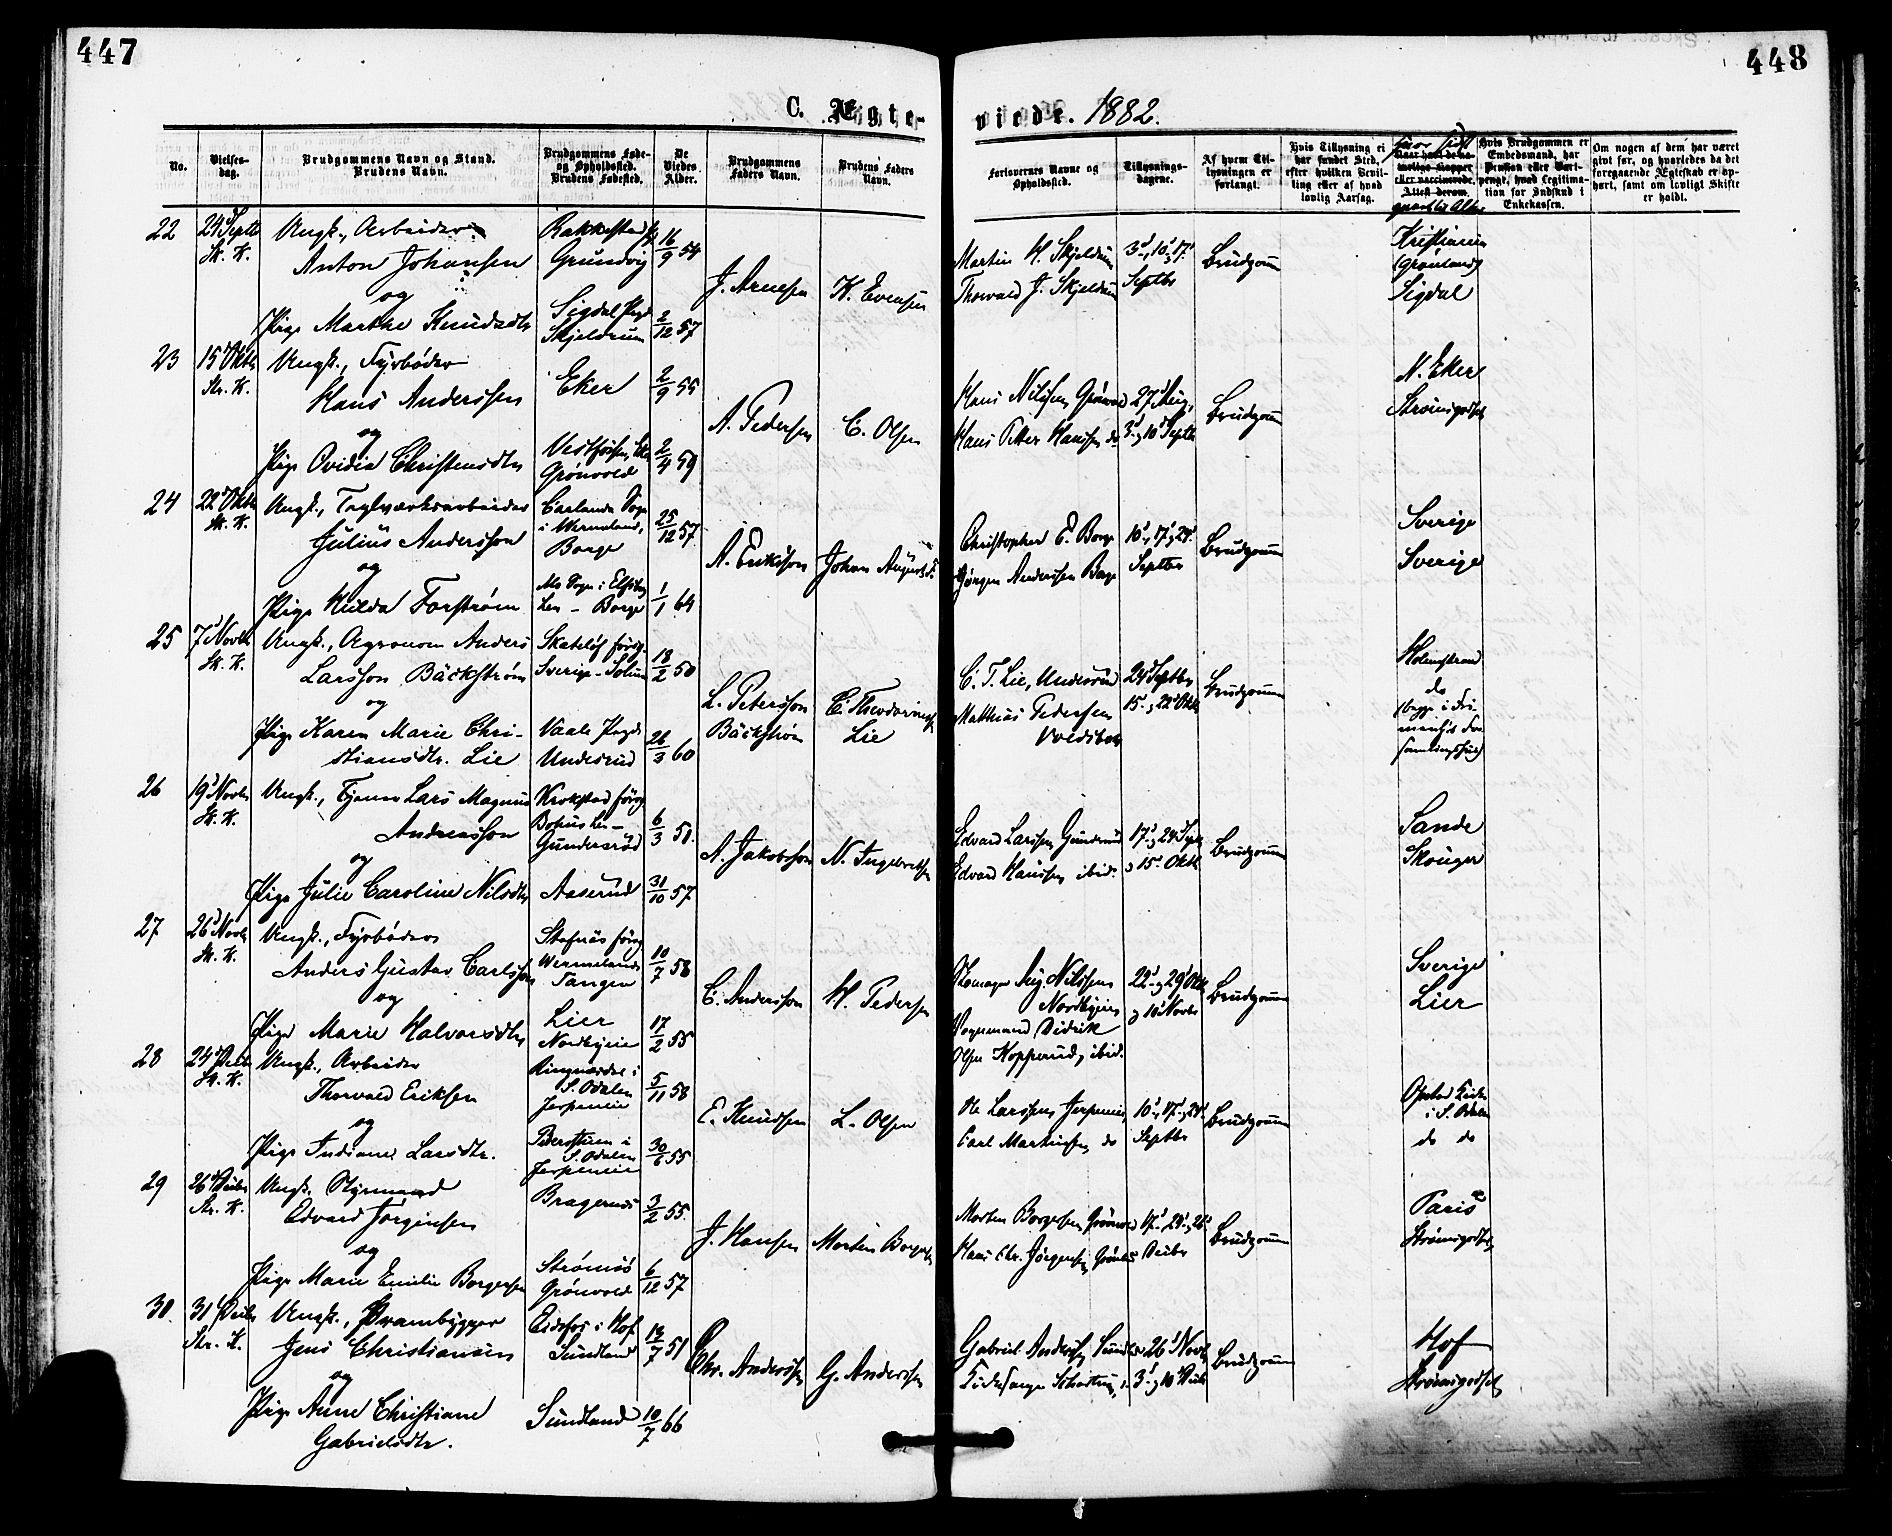 447
448
C. Ægteviede. 1882.
No.
Vielses-
dag.
Brudgommens Navn og Stand.
Brudens Navn.
Brudgommens Føde-
og Opholdssted.
Brudens Fødested.
De
Viedes
Alder.
Brudgommens
Faders Navn.
Brudens Faders
Navn.
Forlovernes Navne og
Opholdssted.
Tillysnings-
dagene.
Af hvem Til-
lysningen er
forlangt.
Hvis Tillysning ei
har fundet Sted,
efter hvilken Bevil-
ling eller af hvad
lovlig Aarsag.
Hvis Brudgommen er
Embedsmand, har
Pension eller Vart-
penge, hvad Legitima-
tion for Indskud i
Enkekassen.
Om nogen af dem har været
givt før, og hvorledes da det
foregaaende Ægteskab er op-
hørt, samt om lovligt Skifte
er holdt.
22
24 Septbr
Sk. K.
Ungk., Arbeider
Anton Johansen
og
Pige Marthe Knudsdtr
Rakkestad
Grundvig
Sigdal Pgd
Skjeldrum
16/9 54
2/12 57
J. Arnesen
K. Evensen
Martin H. Skjeldrum
Thorvald J. Skjeldrum
3d, 10d, 17d
Septbr
Brudgom
Kristiania
(Grønland)
Sigdal
23
15 Oktbr
Str. K.
Ungk., Fyrbøder
Hans Anderssen
og
Pige Ovidia Christensdtr
Eker
Vestfossen, Eker
Grønvold
2/9 55
2/4 59
A. Pedersen
C. Olsen
Hans Nilssen Grønvold
Hans Petter Hanssen do
27d Aug,
3d, 10d Septbr
Brudgom
N. Eker
Strømsgodset
24
22 Oktbr
Sk. K.
Ungk., Teglværksarbeider
Julius Andersson
og
Pige Hulda Forstrøm
Carlanda Sogn
i Wermeland,
Borge
Als Sogn i Elfsborg
Len - Borge
25/12 57
1/1 64
A. Eriksson
Johan August F.
Christopher E. Borge
Jørgen Anderssen Borge
10d, 17d, 24d
Septbr
Brudgom
Sverige
Sverige
25
7 Novbr
Sk. K.
Ungk., Agronom Anders
Larsson Bäckström
og
Pige Karen Marie Chri-
stiansdtr. Lie
Skateløf Førsg.
Sverige - Solum
Vaale Pregd
Underrud
18/2 50
26/3 60
L. Petersson
Bäckström
C. Theodorinus
Lie
C. T. Lie, Underrud
Matthias Pedersen
24d Septbr
15d, 22d Oktbr
Brudgom
Holmestrand
do
(begge i Fri-
26
19 Novbr
Sk. K.
Ungk., Tjener Lars Magnus
Andreasson
og
Pige Julie Caroline Nilsdtr
Krokstad Førsg
Bohus Len -
Gundersrød
Aaserud
6/3 51.
31/10 57
A. Jakobsson
N. Ingebretsen
Edvard Larssen Gundersrud
Edvard Hanssen ibid.
17d, 24 Septbr
, 15d Oktbr
Brudgom
Sande
Skouger
27
26 Novbr
Sk. K.
Ungk., Fyrbøder
Anders Gustav Carlsson
og
Pige Marie Halvorsdtr
Stafnäs Førsg
Wermeland
Tangen
Lier
Nordbyeie
10/7 58
17/2 55
C. Andersson
H. Pedersen
Skomager Aug. Nilssen
Nordbyeie
Vognmand Didrik
Olsen Kopperud, ibid.
22d, 29d Oktbr
, 10d Novbr
Brudgom
Sverige
Lier
28
24 Decbr
Sk. K.
Ungk., Arbeider
Thorvald Eriksen
og
Pige Indiane Larsdtr.
S. Odalen
Jerpeneie
S. Odalen
Jerpeneie
5/11 58
30/6 55
E. Knudsen
L. Olsen
Ole Larssen Jerpeneie,
Carl Martinsen do
10d, 17d, 24d
Septbr
Brudgom
i S. Odalen
do do
29
26 Decbr
Str. K.
Ungk. Styrmand
Edvard Jørgensen
og
Pige Marie Emilie Borgersen
Bragernes
Strømsø
Grønvold
3/2 55.
6/12 57
J. Hansen
Morten Borgersen
Morten Borgersen, Grønvold
Hans Chr. Jørgensen, Grønvold
17d, 24d, 26d
Decbr
Brudgom
Paris
Strømsgodset
30.
31 Decbr
Str. K.
Ungk., Prambygger
Jens Christiansen
og
Pige Anne Christiane
Gabrielsdtr.
Eidsfos i Hof
Sundland
Sundland
13/7 51
10/7 66
Chr. Anderssen
G. Anderssen
Gabriel Anderssen, Sundland
26d Novbr
3d, 10d Decbr
Brudgom
Hof
Strømsgodset